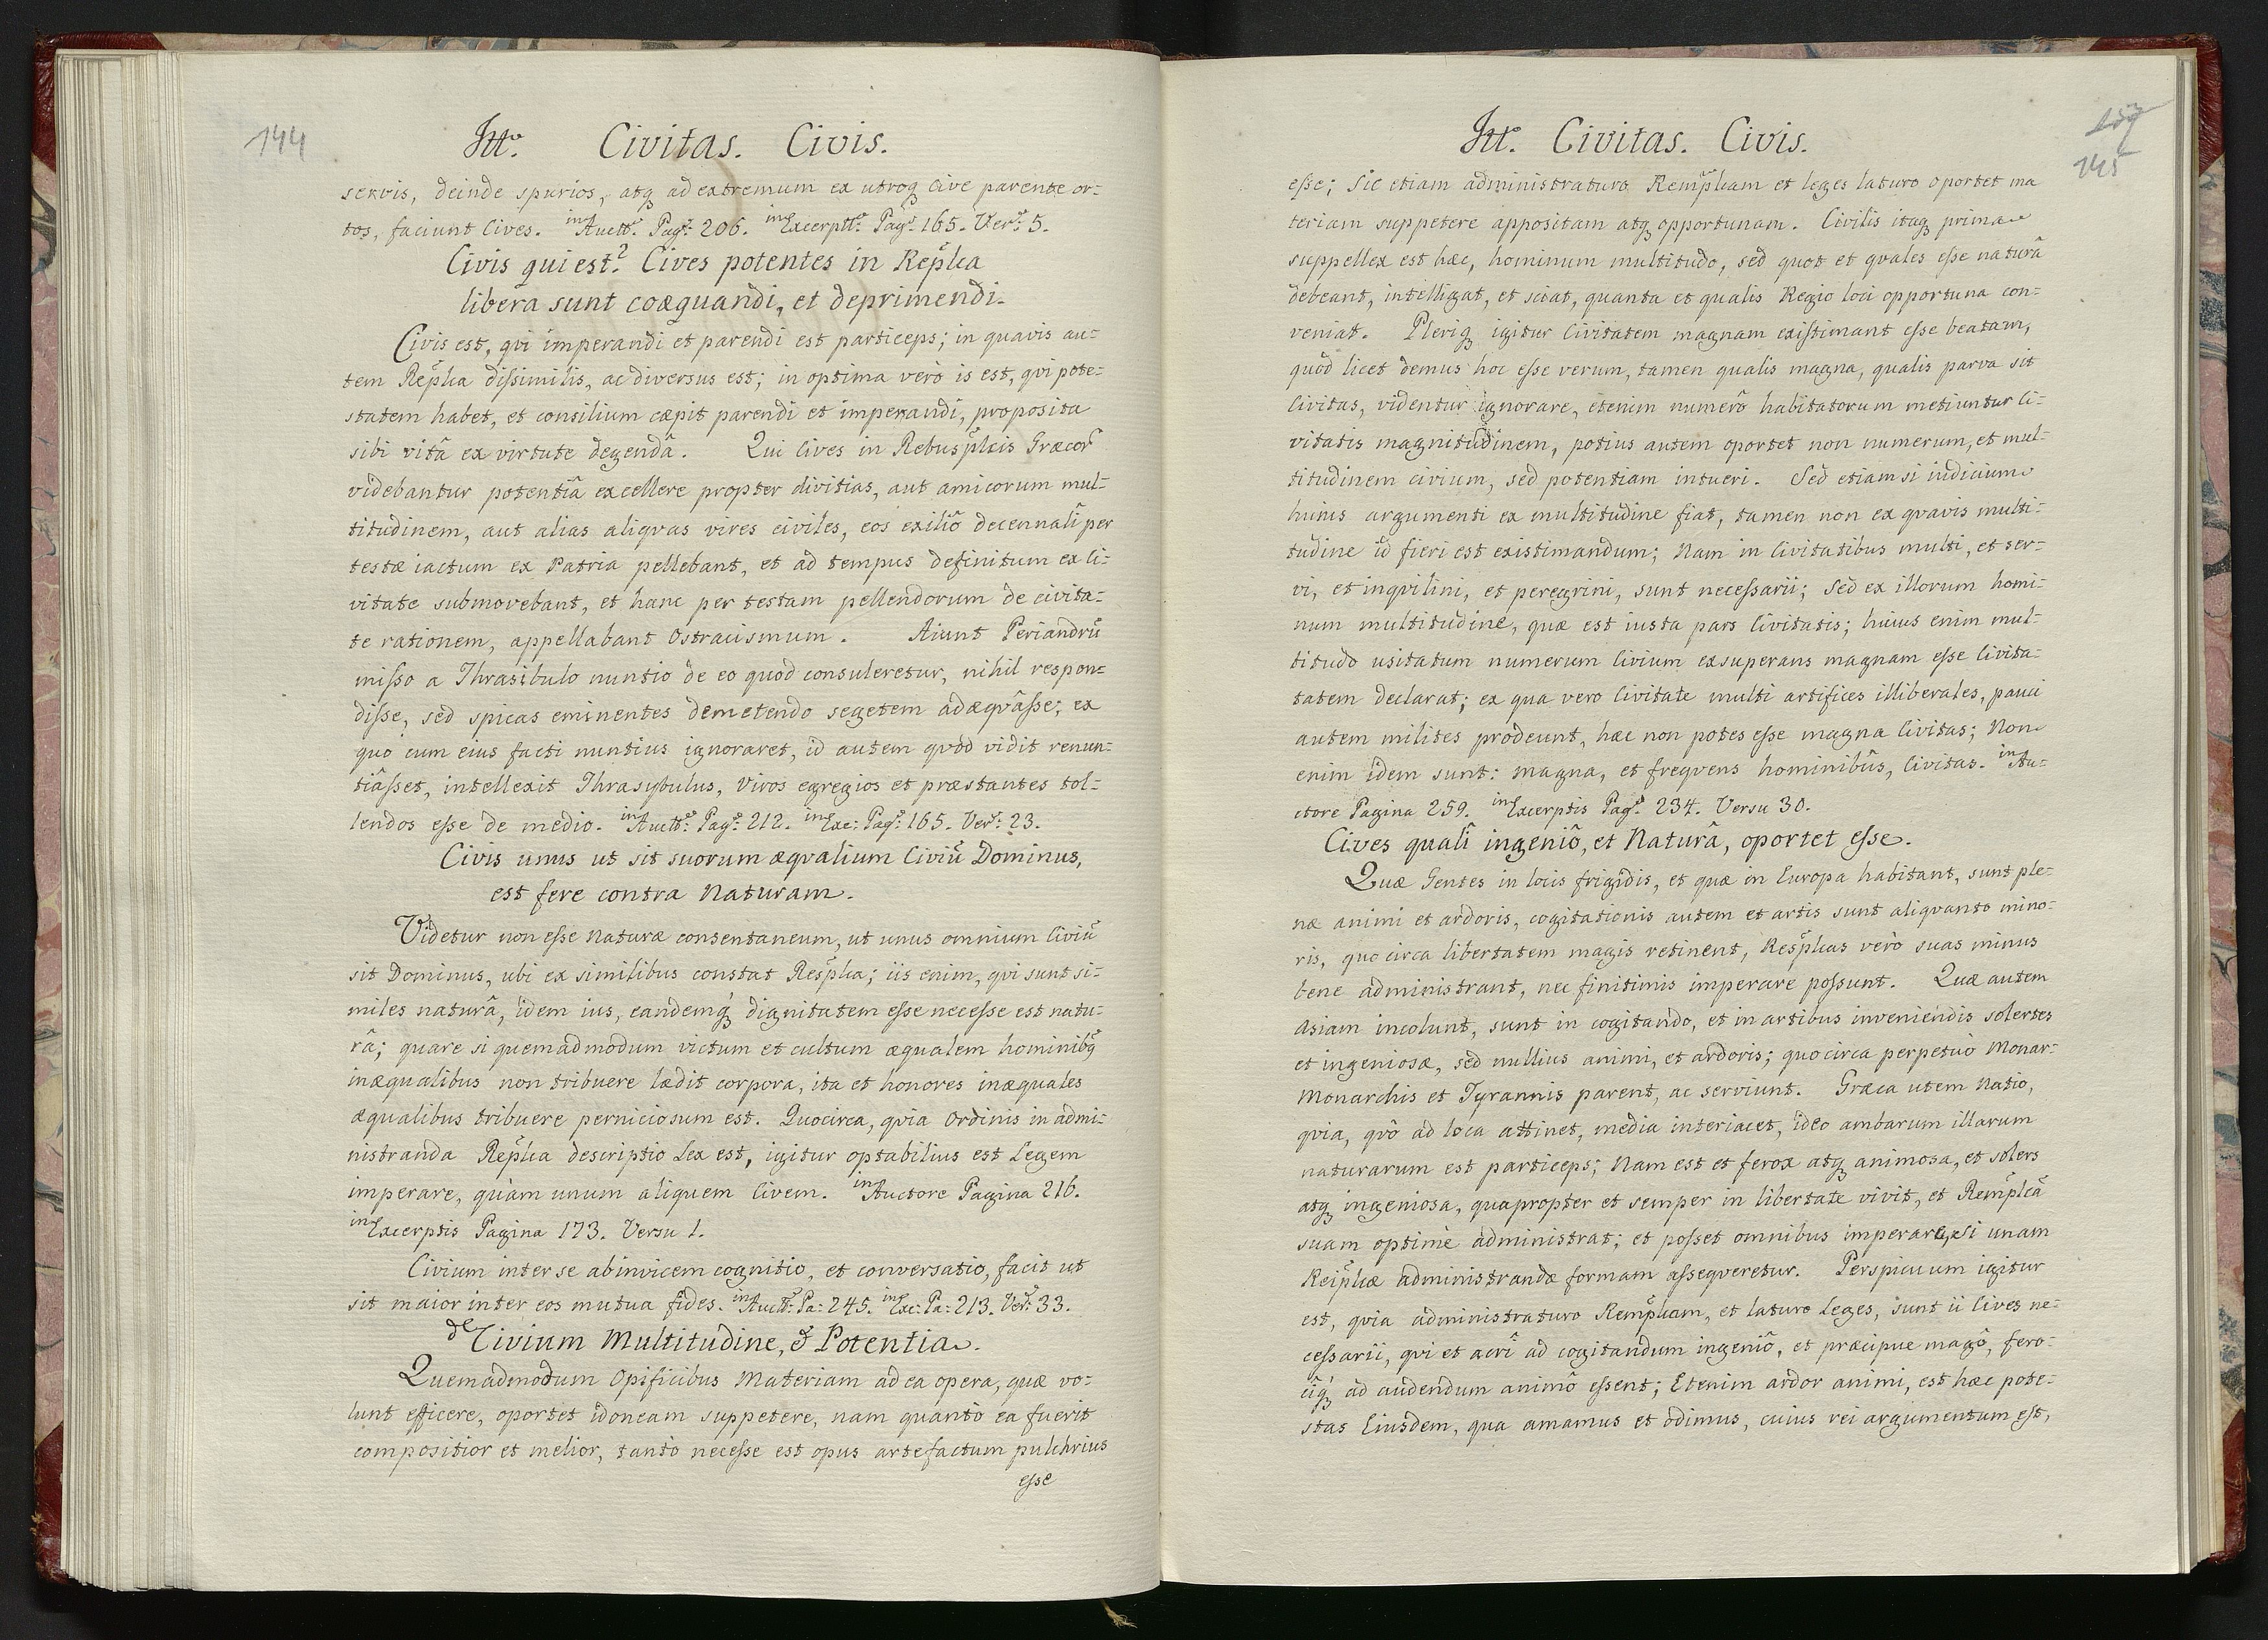 144
Itt. Civitas. Civis.
servis, deinde spurios, atq̃ ad extremum ex utroq̃ Cive parente or=
tos, faciunt Cives. in Auctt: Pag: 206. in Excerptt: Pag: 165. Ver: 5.
Civis qui est? Cives potentes in Rep̃lca
libera sunt coæquandi, et deprimendi.
Civis est, qvi imperandi et parendi est particeps; in quavis au=
tem Rep̃lca dissimilis, ac diversus est; in optima verò is est, qvi pote=
statem habet, et consilium cæpit parendi et imperandi, proposita
sibi vitâ ex virtute degendâ. Qui Cives in Rebusp̃lcis Græcor̃
videbantur potentiâ excellere propter divitias, aut amicorum mul=
titudinem, aut alias aliqvas vires civiles, eos exiliô decennalî per
testæ iactum ex Patria pellebant, et ad tempus definitum ex Ci=
vitate submovebant, et hanc per testam pellendorum de civita=
te rationem, appellabant Ostracismum. Aiunt Periandrũ
misso a Thrasibulo nuntio de eo quod consuleretur, nihil respon=
disse, sed spicas eminentes demetendo segetem adæqvâsse; ex
quo cum eius facti nuntius ignoraret, id autem qvòd vidit renun=
tiâsset, intellexit Thrasybulus, Viros egregios et præstantes tol=
lendos esse de medio. in Auctt: Pag: 212. in Exc: Pag: 165. Ver: 23.
Civis unus ut sit suorum æqvalium Civiũ Dominus,
est fere contra Naturam.
Videtur non esse Naturæ consentaneum, ut unus omnium Civiũ
sit Dominus, ubi ex similibus constat Resp̃lca; iis enim, qvi sunt si=
miles naturâ, idem ius, eandemq̃ dignitatem esse necesse est natu=
râ; quare si quemadmodum victum et cultum æqualem hominibq̃
inæqualibus non tribuere lædit corpora, ita et honores inæquales
æqualibus tribuere perniciosum est. Quocirca, qvia Ordinis in admi=
nistranda Rep̃lca descriptio Lex est, igitur optabilius est Legem
imperare, quàm unum aliquem Civem. in Auctore Pagina 216.
in Excerptis Pagina 173. Versu 1.
Civium inter se abinvicem cognitio, et conversatio, facit ut
sit maior inter eos mutua fides. in Auctt: Pa: 245. in Exc: Pa: 213. Ver: 33.
de Civium Multitudine, & Potentia.
Quemadmodum Opificibus Materiam ad ea opera, quæ vo=
lunt efficere, oportet idoneam suppetere, nam quantò ea fuerit
compositior et melior, tantò necesse est opus artefactum pulchrius
esse
145
Itt. Civitas. Civis.
esse; Sic etiam administraturo Remp̃lcam et leges laturo oportet ma
teriam suppetere appositam atq̃ opportunam. Civilis itaq̃ prima
suppellex est hæc, hominum multitudo, sed quot et qvales esse naturâ
debeant, intelligat, et sciat, quanta et qualis Regio loci opportuna con=
veniat. Pleriq̃ igitur Civitatem magnam existimant esse beatam,
quòd licet demus hoc esse verum, tamen qualis magna, qualis parva sit
Civitas, videntur ignorare, etenim numerô habitatorum metiuntur Ci=
vitatis magnitudinem, potius autem oportet non numerum, et mul=
titudinem civium, sed potentiam intueri. Sed etiamsi iudicium
huius argumenti ex multitudine fiat, tamen non ex qvavis multi=
tudine id fieri est existimandum; Nam in Civitatibus multi, et ser=
vi, et inqvilini, et peregrini, sunt necessarii; Sed ex illorum homi=
num multitudine, quæ est iusta pars Civitatis; huius enim mul=
titudo usitatum numerum Civium exsuperans magnam esse Civita=
tatem declarat; ex qua vero Civitate multi artifices illiberales, pauci
autem milites prodeunt, hæc non potes esse magna Civitas; Non
enim idem sunt: magna, et freqvens hominibûs, Civitas. in Au=
ctore Pagina 259. in Excerptis Pag: 234. Versu 30.
Cives qualî ingeniô, et Naturâ, oportet esse.
Quæ Gentes in locis frigidis, et quæ in Europa habitant, sunt ple=
næ animi et ardoris, cogitationis autem et artis sunt aliqvanto mino=
ris, quocirca libertatem magis retinent, Resp̃lcas verò suas minus
bene administrant, nec finitimis imperare possunt. Quæ autem
Asiam incolunt, sunt in cogitando, et in artibus inveniendis solertes
et ingeniosæ, sed nullius animi, et ardoris; quocirca perpetuò Monar=
Monarchis et Tyrannis parent, ac serviunt. Græca utem Natio,
qvia, qvò ad loca attinet, media interiacet, ideo ambarum illarum
naturarum est particeps; Nam est et ferox atq̃ animosa, et solers
atq̃ ingeniosa, quapropter et semper in libertate vivit, et Remp̃lcã
suam optimè administrat; et posset omnibus imperare, si unam
Reip̃lcæ administrandæ formam asseqveretur. Perspicuum igitur
est, qvia administraturo Remp̃lcam, et laturo Leges, sunt ii Cives ne=
cessarii, qvi et acrî ad cogitandum ingeniô, et præcipue magô, fero=
cîq̃ ad audendum animô essent; Etenim ardor animi, est hæc pote=
stas Eiusdem, qua amamus et odimus, cuius rei argumentum est,